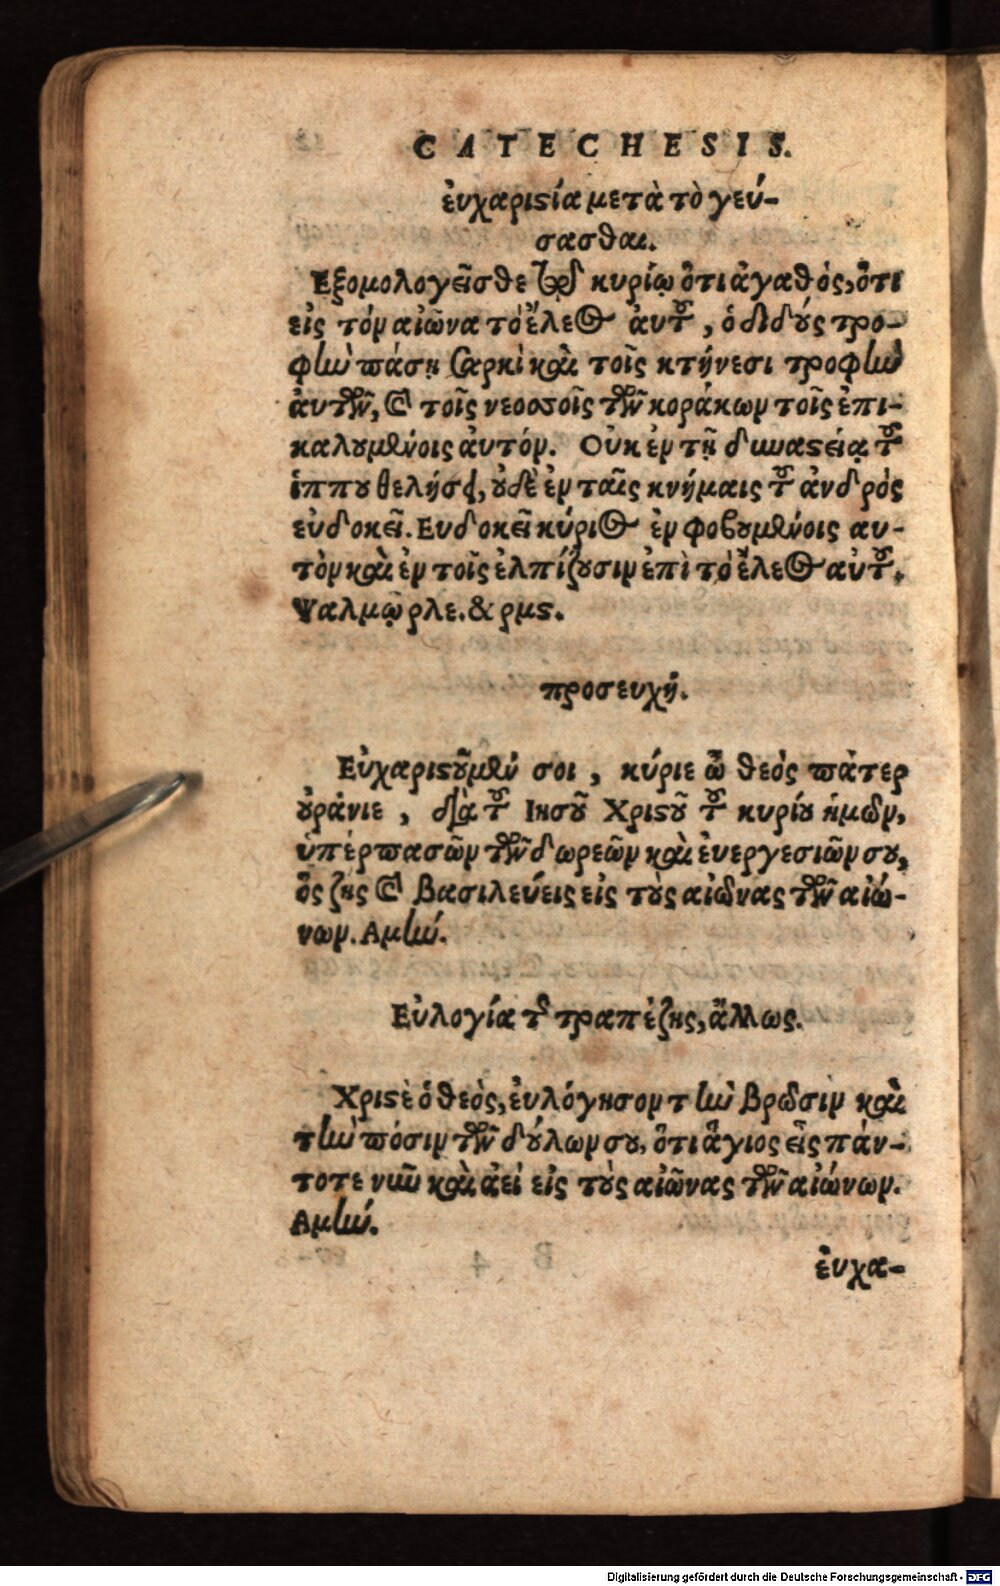 CATECHESIS.
ἐυχαριστία μετὰ τὸ γεύ-
σασθαι.
Εξομολογεῖσθε τῷ κυρίῳ ὅτι ἀγαθὸς, ὅτι
εἰς τὸν αἰῶνα τὸ ἔλεος ἀυτοῦ, ὁ διδοὺς τρο-
φὴν πάσῃ σαρκὶ καὶ τοῖς κτήνεσι τροφὴν
ἀυτῶν, καὶ τοῖς νεοσσοῖς τῶν κοράκων τοῖς ἐπι-
καλουμένοις ἀυτόν. Οὐκ ἐν τῇ δυναστείᾳ τοῦ
ἵππου θελήσει, οὐδὲ ἐν ταῖς κνήμαις τοῦ ἀνδρὸς
εὐδοκεῖ. Ευδοκεῖ κύριος ἐν φοβουμένοις αυ-
τὸν καὶ ἐν τοῖς ἐλπίζουσιν ἐπὶ τὸ ἔλεος αὐτοῦ.
Ψαλμῷ ρλε. & ρμς.
προσευχή.
Εὐχαριστοῦμέν σοι, κύριε ὦ θεὸς πάτερ
οὐράνιε, διὰ τοῦ Ιησοῦ Χριστοῦ τοῦ κυρίου ἡμῶν,
ὑπὲρ πασῶν τῶν δωρεῶν καὶ ἐυεργεσιῶν σου,
ὃς ζῆς καὶ βασιλεύεις εἰς τοὺς αἰῶνας τῶν αἰώ-
νων. Αμήν.
Εὐλογία τῆς τραπέζης, ἄλλως.
Χριστὲ ὁ θεὸς, ἐυλόγησον τὴν βρῶσιν καὶ
τὴν πόσιν τῶν δούλων σου, ὅτι ἅγιος εἶς πάν-
τοτε νῦν καὶ ἀεὶ εἰς τοὺς αἰῶνας τῶν αἰώνων.
Αμήν.
ἐυχα-
Digitalisierung gefördert durch die Deutsche Forschungsgemeinschaft - DFG